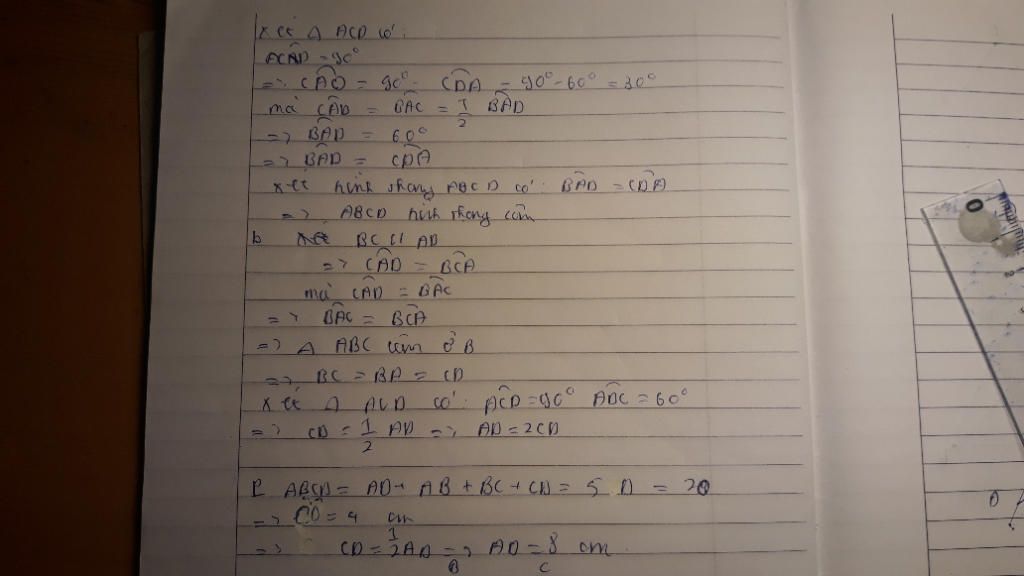 Xét Δ ACD có:
ACAD = 90°
=> CAD = 90° - CDA = 90° - 60° = 30°
mà CAD = BAC = 1/2 BAD
=> BAD = 60°
=> BAD = CDA
Xét hình thang ABCD có: BAD = CDA
=> ABCD hình thang cân
b BC // AD
=> CAD = BCA
mà CAD = BAC
=> BAC = BCA
=> Δ ABC cân ở B
=> BC = BA = CD
Xét Δ ACD có: ACD = 90° ADC = 60°
=> CD = 1/2 AD => AD = 2CD
P ABCD = AD + AB + BC + CD = 5 D = 20
=> CD = 4 cm
=> CD = 1/2 AD => AD = 8 cm.
B C
0